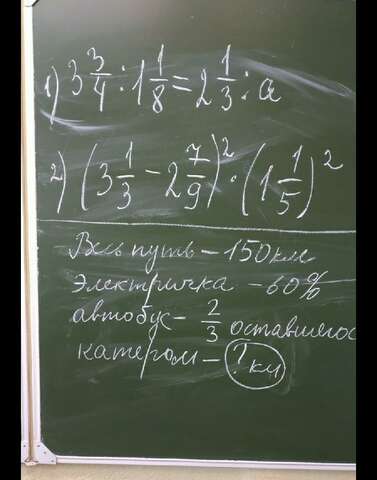 1) 3 3/4 : 1 1/8 = 2 1/3 : a
2) (3 1/3 - 2 7/9)² · (1 1/5)²
Весь путь - 150 км
Электричка - 60%
автобус - 2/3 оставшегос
катером - ? км